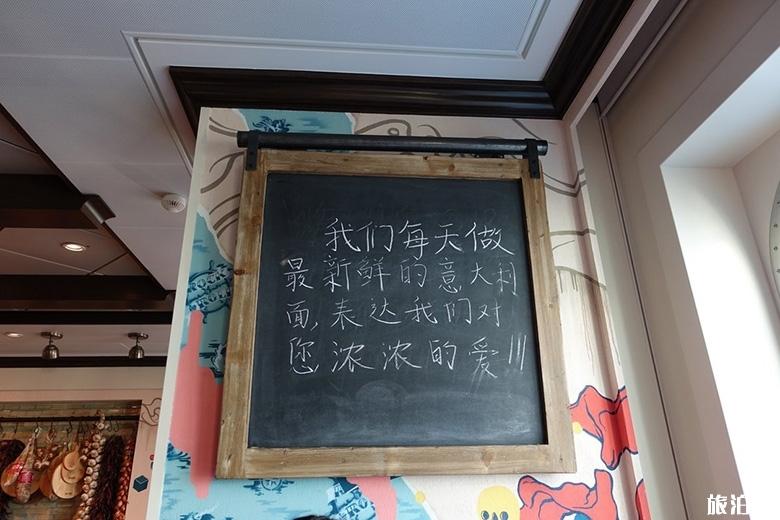 我们每天做
最新鲜的意大利
面,表达我们对
您浓浓的爱!!!
旅泊